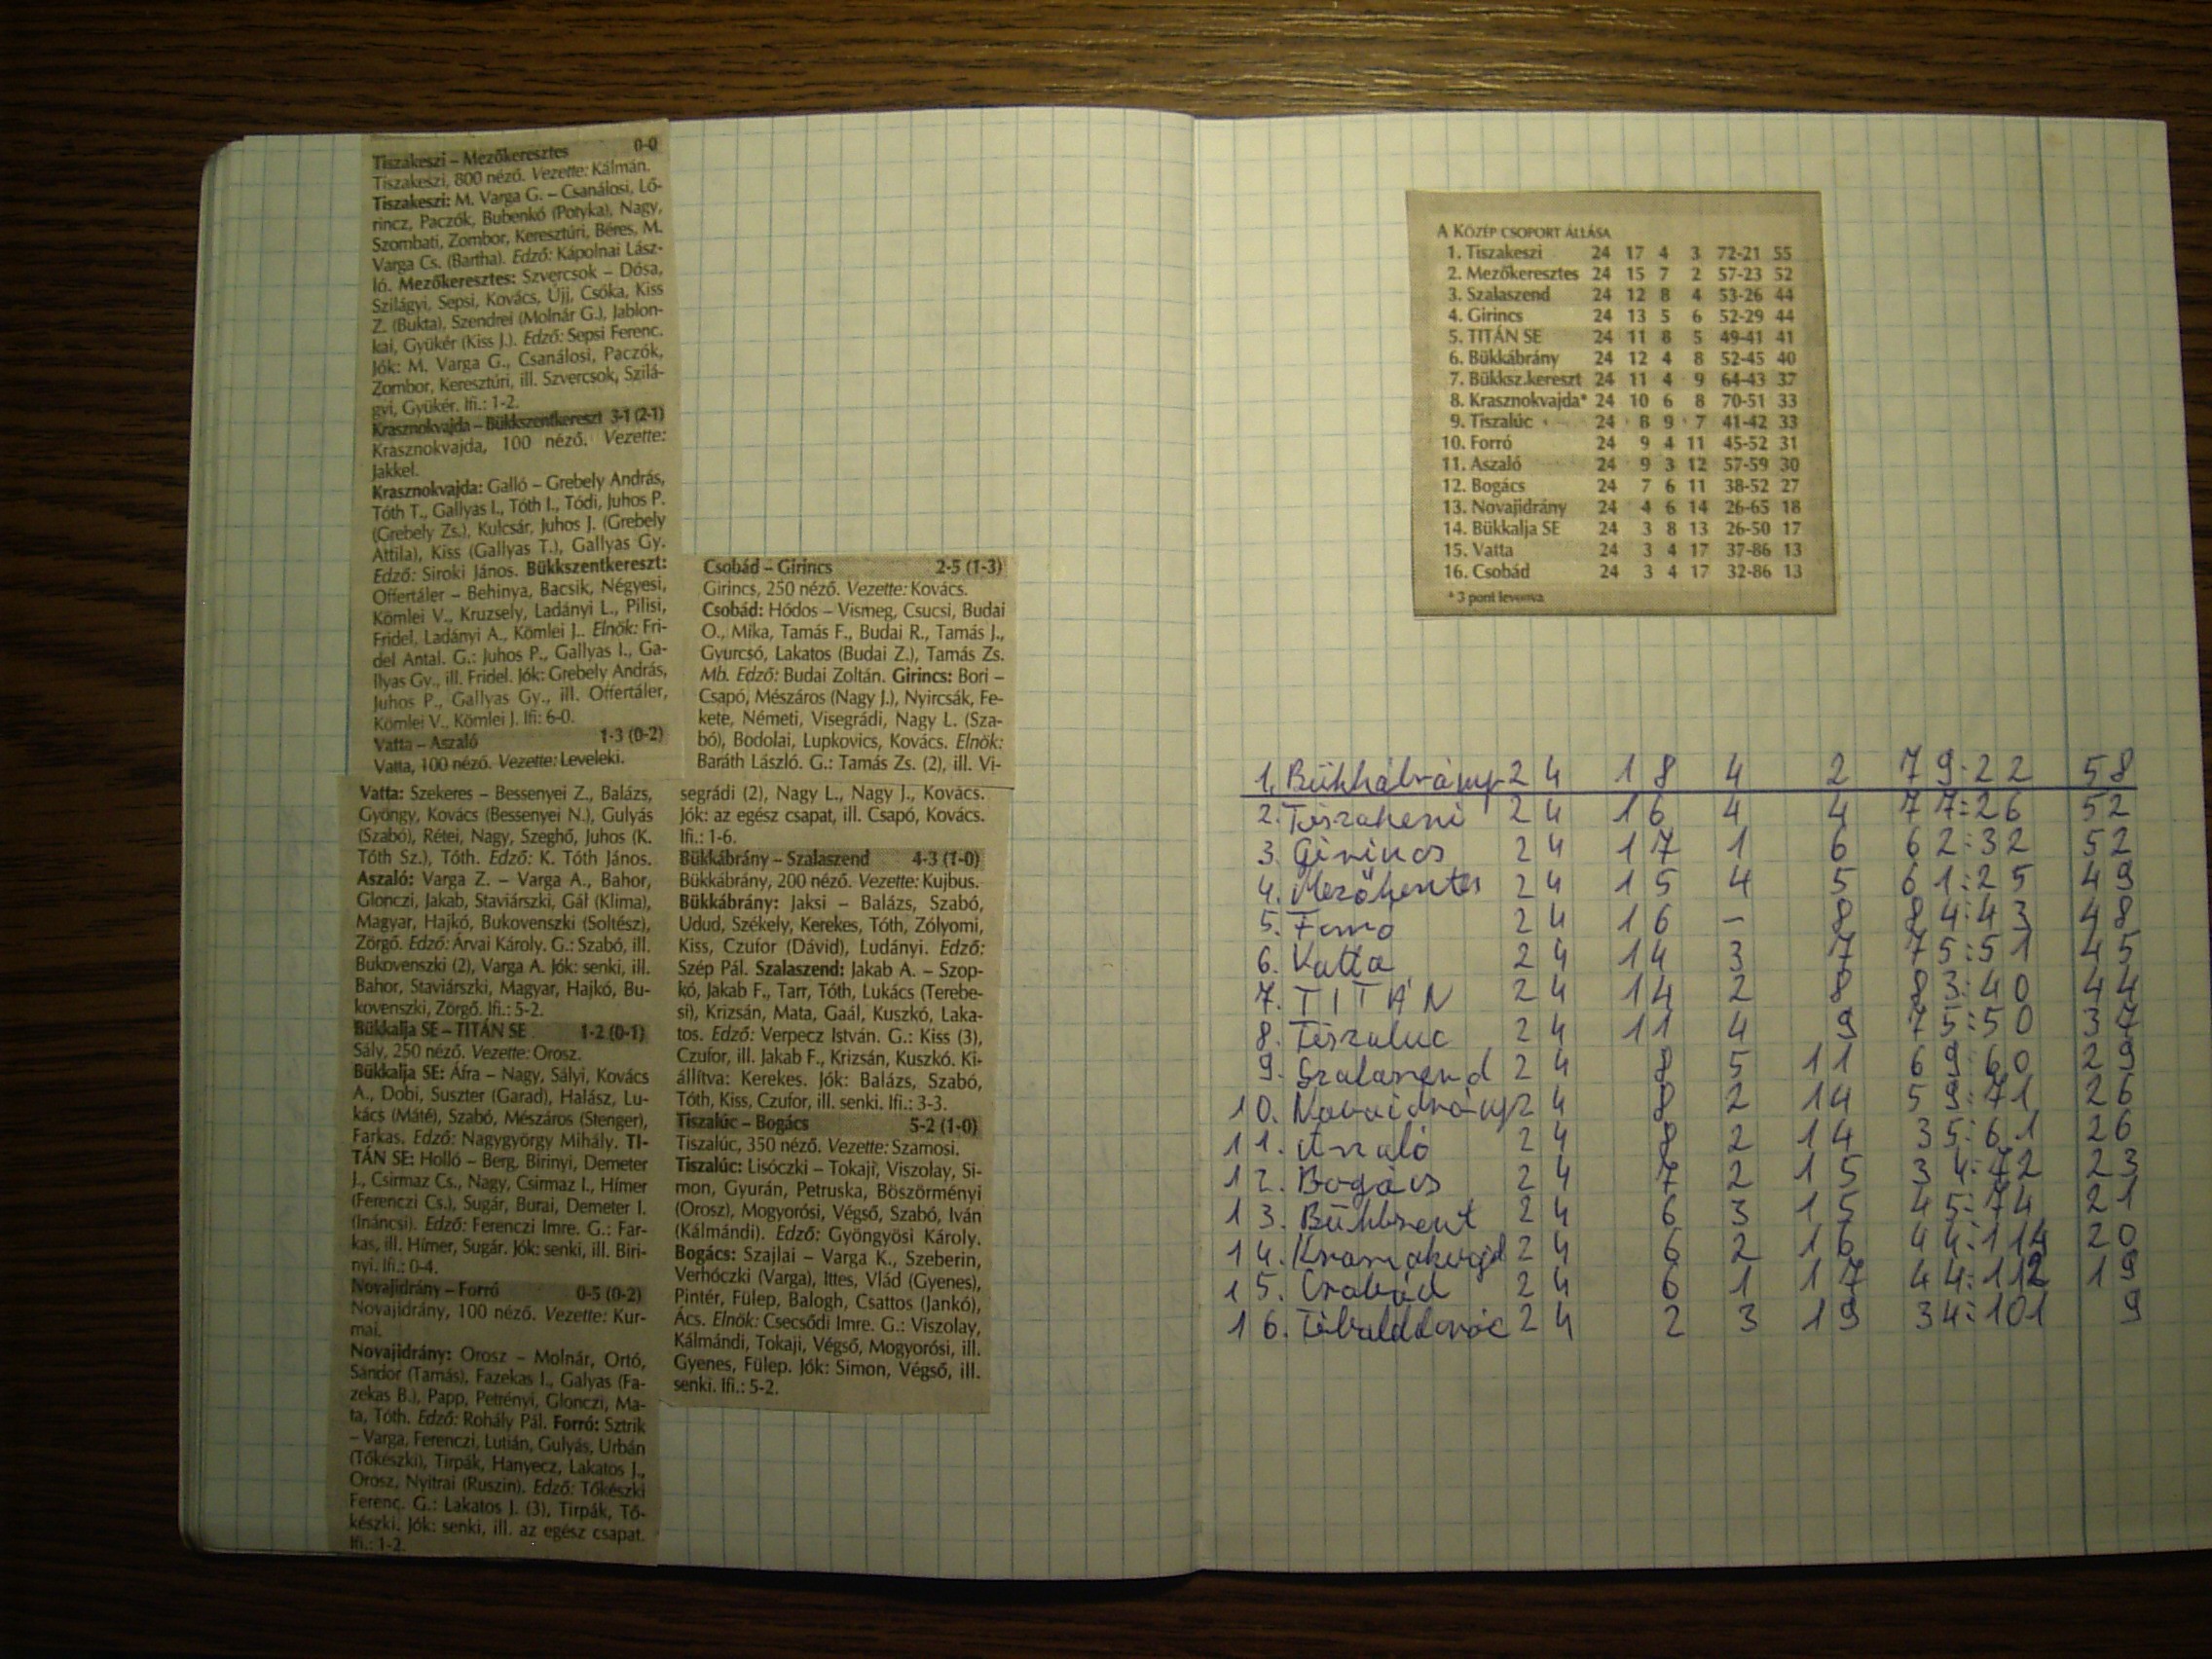 Tiszakeszi – Mezőkeresztes 0-0
Tiszakeszi, 800 néző. Vezette: Kálmán.
Tiszakeszi: M. Varga G. – Csanálosi, Lő-
rincz, Paczók, Bubenkó (Potyka), Nagy,
Szombati, Zombor, Keresztúri, Béres, M.
Varga Cs. (Bartha). Edző: Kápolnai Lász-
ló. Mezőkeresztes: Szvercsok – Dósa,
Szilágyi, Sepsi, Kovács, Újj, Csóka, Kiss
Z. (Bukta), Szendrei (Molnár G.), Jablon-
kai, Gyükér (Kiss J.). Edző: Sepsi Ferenc.
Jók: M. Varga G., Csanálosi, Paczók,
Zombor, Keresztúri, ill. Szvercsok, Szilá-
gyi, Gyükér. Ifi.: 1-2.
Krasznokvajda – Bükkszentkereszt 3-1 (2-1)
Krasznokvajda, 100 néző. Vezette:
Jakkel.
Krasznokvajda: Galló – Grebely András,
Tóth T., Gallyas I., Tóth I., Tódi, Juhos P.
(Grebely Zs.), Kulcsár, Juhos J. (Grebely
Attila), Kiss (Gallyas T.), Gallyas Gy.
Edző: Siroki János. Bükkszentkereszt:
Offertáler – Behinya, Bacsik, Négyesi,
Kömlei V., Kruzsely, Ladányi L., Pilisi,
Fridel, Ladányi A., Kömlei J.. Elnök: Fri-
del Antal. G.: Juhos P., Gallyas I., Ga-
llyas Gy., ill. Fridel. Jók: Grebely András,
Juhos P., Gallyas Gy., ill. Offertáler,
Kömlei V., Kömlei J. Ifi: 6-0.
Vatta – Aszaló 1-3 (0-2)
Vatta, 100 néző. Vezette: Leveleki.
Vatta: Szekeres – Bessenyei Z., Balázs,
Gyöngy, Kovács (Bessenyei N.), Gulyás
(Szabó), Rétei, Nagy, Szeghő, Juhos (K.
Tóth Sz.), Tóth. Edző: K. Tóth János.
Aszaló: Varga Z. – Varga A., Bahor,
Glonczi, Jakab, Staviárszki, Gál (Klima),
Magyar, Hajkó, Bukovenszki (Soltész),
Zörgő. Edző: Árvai Károly. G.: Szabó, ill.
Bukovenszki (2), Varga A. Jók: senki, ill.
Bahor, Staviárszki, Magyar, Hajkó, Bu-
kovenszki, Zörgő. Ifi.: 5-2.
Bükkalja SE – TITÁN SE 1-2 (0-1)
Sály, 250 néző. Vezette: Orosz.
Bükkalja SE: Áfra – Nagy, Sályi, Kovács
A., Dobi, Suszter (Garad), Halász, Lu-
kács (Máté), Szabó, Mészáros (Stenger),
Farkas. Edző: Nagygyörgy Mihály. TI-
TÁN SE: Holló – Berg, Birinyi, Demeter
J., Csirmaz Cs., Nagy, Csirmaz I., Hímer
(Ferenczi Cs.), Sugár, Burai, Demeter I.
(Ináncsi). Edző: Ferenczi Imre. G.: Far-
kas, ill. Hímer, Sugár. Jók: senki, ill. Biri-
nyi. Ifi.: 0-4.
Novajidrány – Forró 0-5 (0-2)
Novajidrány, 100 néző. Vezette: Kur-
mai.
Novajidrány: Orosz – Molnár, Ortó,
Sándor (Tamás), Fazekas I., Galyas (Fa-
zekas B.), Papp, Petrényi, Glonczi, Ma-
ta, Tóth. Edző: Rohály Pál. Forró: Sztrik
– Varga, Ferenczi, Lutián, Gulyás, Urbán
(Tőkészki), Tirpák, Hanyecz, Lakatos J.,
Orosz, Nyitrai (Ruszin). Edző: Tőkészki
Ferenc. G.: Lakatos J. (3), Tirpák, Tő-
készki. Jók: senki, ill. az egész csapat.
Ifi.: 1-2.
Csobád – Girincs 2-5 (1-3)
Girincs, 250 néző. Vezette: Kovács.
Csobád: Hódos – Vismeg, Csucsi, Budai
O., Mika, Tamás F., Budai R., Tamás J.,
Gyurcsó, Lakatos (Budai Z.), Tamás Zs.
Mb. Edző: Budai Zoltán. Girincs: Bori –
Csapó, Mészáros (Nagy J.), Nyircsák, Fe-
kete, Németi, Visegrádi, Nagy L. (Sza-
bó), Bodolai, Lupkovics, Kovács. Elnök:
Baráth László. G.: Tamás Zs. (2), ill. Vi-
segrádi (2), Nagy L., Nagy J., Kovács.
Jók: az egész csapat, ill. Csapó, Kovács.
Ifi.: 1-6.
Bükkábrány – Szalaszend 4-3 (1-0)
Bükkábrány, 200 néző. Vezette: Kujbus.
Bükkábrány: Jaksi – Balázs, Szabó,
Udud, Székely, Kerekes, Tóth, Zólyomi,
Kiss, Czufor (Dávid), Ludányi. Edző:
Szép Pál. Szalaszend: Jakab A. – Szop-
kó, Jakab F., Tarr, Tóth, Lukács (Terebe-
si), Krizsán, Mata, Gaál, Kuszkó, Laka-
tos. Edző: Verpecz István. G.: Kiss (3),
Czufor, ill. Jakab F., Krizsán, Kuszkó. Ki-
állítva: Kerekes. Jók: Balázs, Szabó,
Tóth, Kiss, Czufor, ill. senki. Ifi.: 3-3.
Tiszalúc – Bogács 5-2 (1-0)
Tiszalúc, 350 néző. Vezette: Szamosi.
Tiszalúc: Lisóczki – Tokaji, Viszolay, Si-
mon, Gyurán, Petruska, Böszörményi
(Orosz), Mogyorósi, Végső, Szabó, Iván
(Kálmándi). Edző: Gyöngyösi Károly.
Bogács: Szajlai – Varga K., Szeberin,
Verhóczki (Varga), Ittes, Vlád (Gyenes),
Pintér, Fülep, Balogh, Csattos (Jankó),
Ács. Elnök: Csecsődi Imre. G.: Viszolay,
Kálmándi, Tokaji, Végső, Mogyorósi, ill.
Gyenes, Fülep. Jók: Simon, Végső, ill.
senki. Ifi.: 5-2.
A KÖZÉP CSOPORT ÁLLÁSA
1. Tiszakeszi 24 17 4 3 72-21 55
2. Mezőkeresztes 24 15 7 2 57-23 52
3. Szalaszend 24 12 8 4 53-26 44
4. Girincs 24 13 5 6 52-29 44
5. TITÁN SE 24 11 8 5 49-41 41
6. Bükkábrány 24 12 4 8 52-45 40
7. Bükksz.kereszt 24 11 4 9 64-43 37
8. Krasznokvajda* 24 10 6 8 70-51 33
9. Tiszalúc 24 8 9 7 41-42 33
10. Forró 24 9 4 11 45-52 31
11. Aszaló 24 9 3 12 57-59 30
12. Bogács 24 7 6 11 38-52 27
13. Novajidrány 24 4 6 14 26-65 18
14. Bükkalja SE 24 3 8 13 26-50 17
15. Vatta 24 3 4 17 37-86 13
16. Csobád 24 3 4 17 32-86 13
* 3 pont levonva
1. Bükkábrány 24 18 4 2 79:22 58
2. Tiszakeszi 24 16 4 4 77:26 52
3. Girincs 24 17 1 6 62:32 52
4. Mezőkeresztes 24 15 4 5 61:25 49
5. Forró 24 16 – 8 84:43 48
6. Vatta 24 14 3 7 75:51 45
7. TITÁN 24 14 2 8 83:40 44
8. Tiszaluc 24 11 4 9 75:50 37
9. Szalaszend 24 8 5 11 69:60 29
10. Novaidrány 24 8 2 14 59:71 26
11. Aszaló 24 8 2 14 35:61 26
12. Bogács 24 7 2 15 34:72 23
13. Bükkszent 24 6 3 15 45:74 21
14. Krasnokvajd 24 6 2 16 44:114 20
15. Csobád 24 6 1 17 44:112 19
16. Tibolddaróc 24 2 3 19 34:101 9